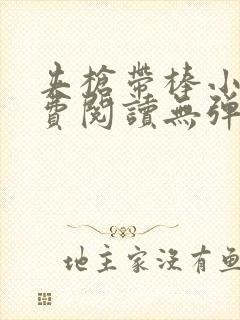 夹槍帶棒小
費閱讀無彈
地主家沒有鱼